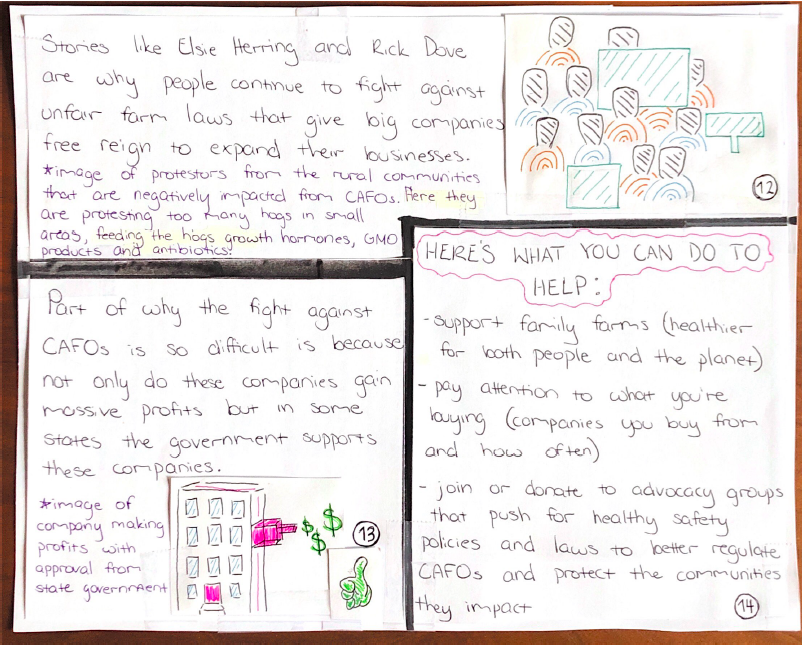 Stories like Elsie Herring and Rick Dove
are why people continue to fight against
unfair farm laws that give big companies
free reign to expand their businesses.
*image of protestors from the rural communities
that are negatively impacted from CAFOs. Here they
are protesting too many hogs in small
areas, feeding the hogs growth hormones, GMO
products and antibiotics.
12
Part of why the fight against
CAFOs is so difficult is because
not only do these companies gain
massive profits but in some
states the government supports
these companies.
*image of
company making
profits with
approval from
state government
$
$
$
13
HERE'S WHAT YOU CAN DO TO
HELP:
- support family farms (healthier
for both people and the planet)
- pay attention to what you're
buying (companies you buy from
and how often)
- join or donate to advocacy groups
that push for healthy safety
policies and laws to better regulate
CAFOs and protect the communities
they impact
14